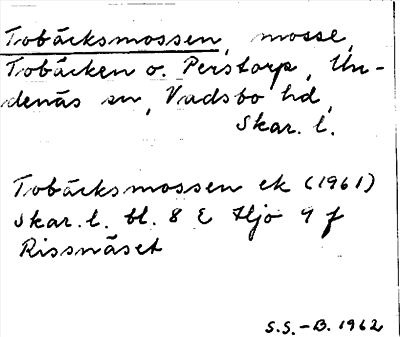 Tobäcksmossen, mosse,
Tobäcken o. Perstorp, Un-
denäs sn, Vadsbo hd,
Skar. l.
Tobäcksmossen ek (1961)
Skar. l. bl. 8 E Hjo 9 f
Rissnäset
S.S.-B. 1962